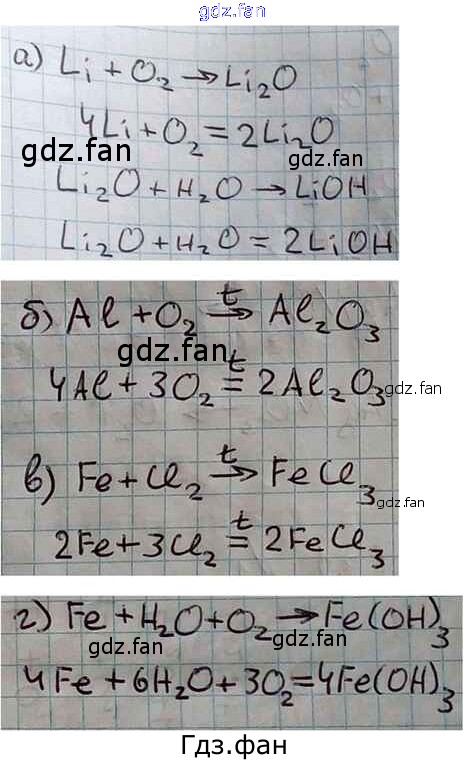 gdz.fan
а) Li + O₂ → Li₂O
4Li + O₂ = 2Li₂O
gdz.fan
gdz.fan
Li₂O + H₂O → LiOH
Li₂O + H₂O = 2LiOH
б) Al + O₂ t→ Al₂O₃
gdz.fan
4Al + 3O₂ t= 2Al₂O₃
gdz.fan
в) Fe + Cl₂ t→ FeCl₃
gdz.fan
2Fe + 3Cl₂ t= 2FeCl₃
г) Fe + H₂O + O₂ → Fe(OH)₃
gdz.fan
gdz.fan
4Fe + 6H₂O + 3O₂ = 4Fe(OH)₃
Гдз.фан